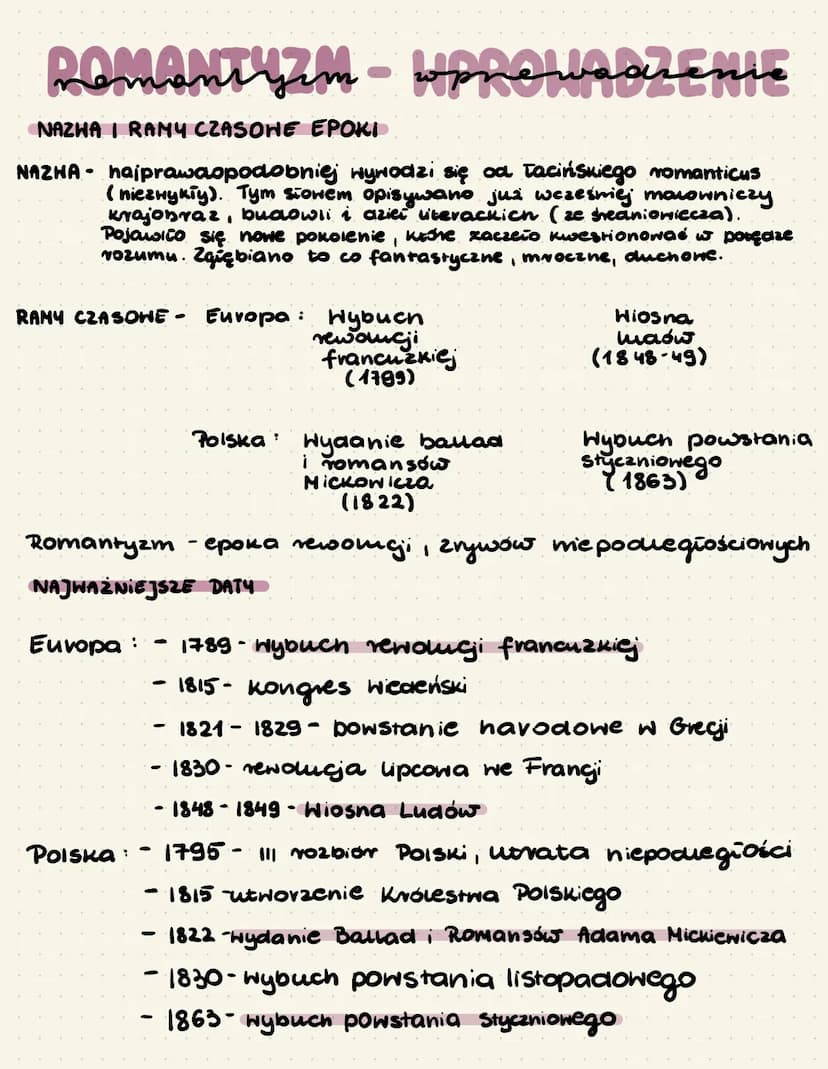 ROMANTYZM - WPROWADZENIE
romantyzm wprowadzenie
NAZWA I RAMY CZASOWE EPOKI
NAZWA - najprawdopodobniej wywodzi się od łacińskiego romanticus
(niezwykły). Tym słowem opisywano już wcześniej malowniczy
krajobraz, budowli i dzieł literackich (ze średniowiecza).
Pojawiło się nowe pokolenie, które zaczęło kwestionować w potędze
rozumu. Zgłębiano to co fantastyczne, mroczne, duchowe.
RAMY CZASOWE - Europa: Wybuch rewolucji francuzkiej (1789) Wiosna Ludów (1848-49)
Polska: Wydanie ballad i romansów Mickowicza (1822) Wybuch powstania styczniowego (1863)
Romantyzm - epoka rewolucji, zrywów niepodległościowych
NAJWAŻNIEJSZE DATY
Europa: - 1789 - wybuch rewolucji francuzkiej
- 1815 - kongres wiedeński
- 1821 - 1829 - powstanie narodowe w Grecji
- 1830 - rewolucja lipcowa we Francji
- 1848 - 1849 - Wiosna Ludów
Polska: - 1795 - III rozbiór Polski, utrata niepodległości
- 1815 - utworzenie Królestwa Polskiego
- 1822 - Wydanie Ballad i Romansów Adama Mickiewicza
- 1830 - wybuch powstania listopadowego
- 1863 - wybuch powstania Styczniowego